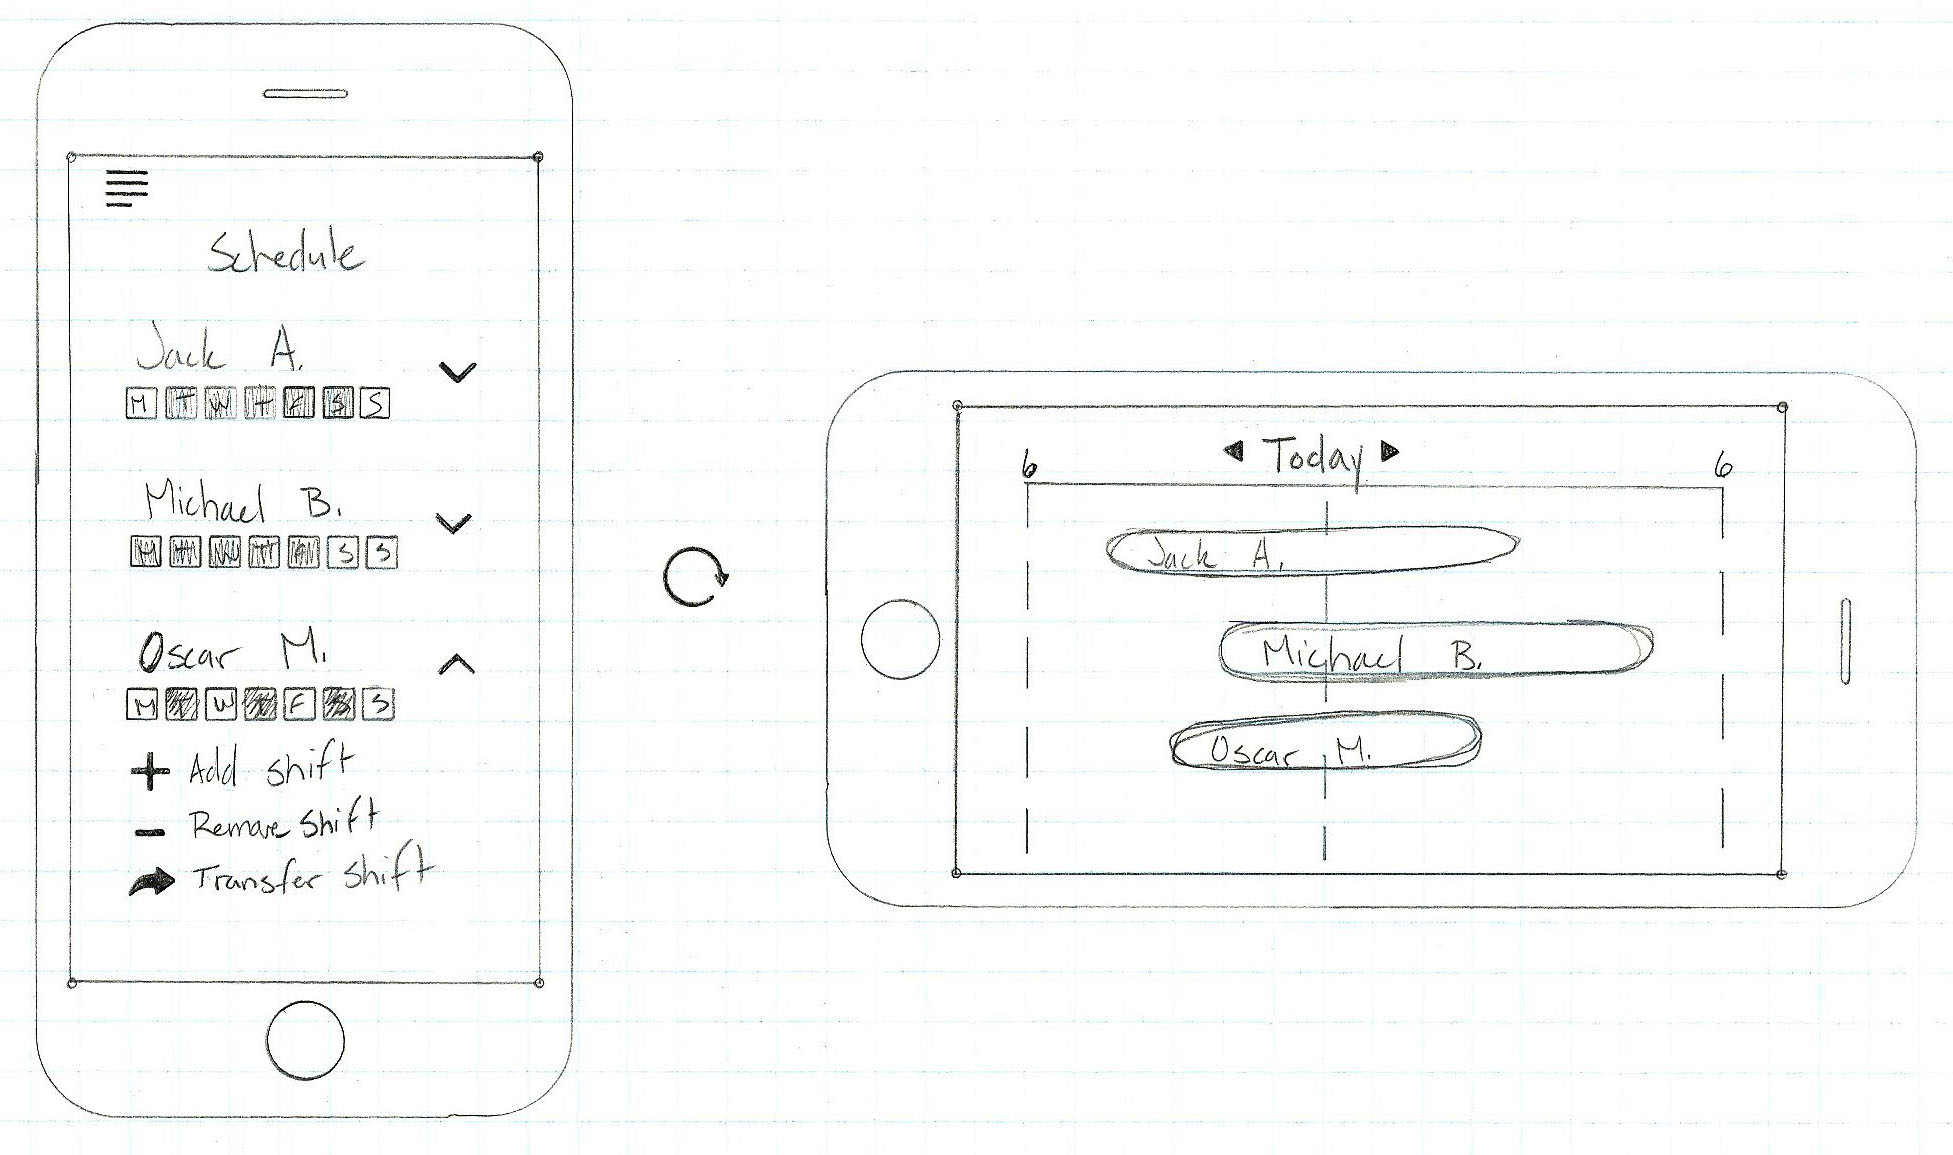 Schedule
Jack A.
M T W T F S S
Michael B.
M T W T F S S
Oscar M.
M T W T F S S
+ Add shift
- Remove shift
Transfer shift
Today
6 6
Jack A.
Michael B.
Oscar M.